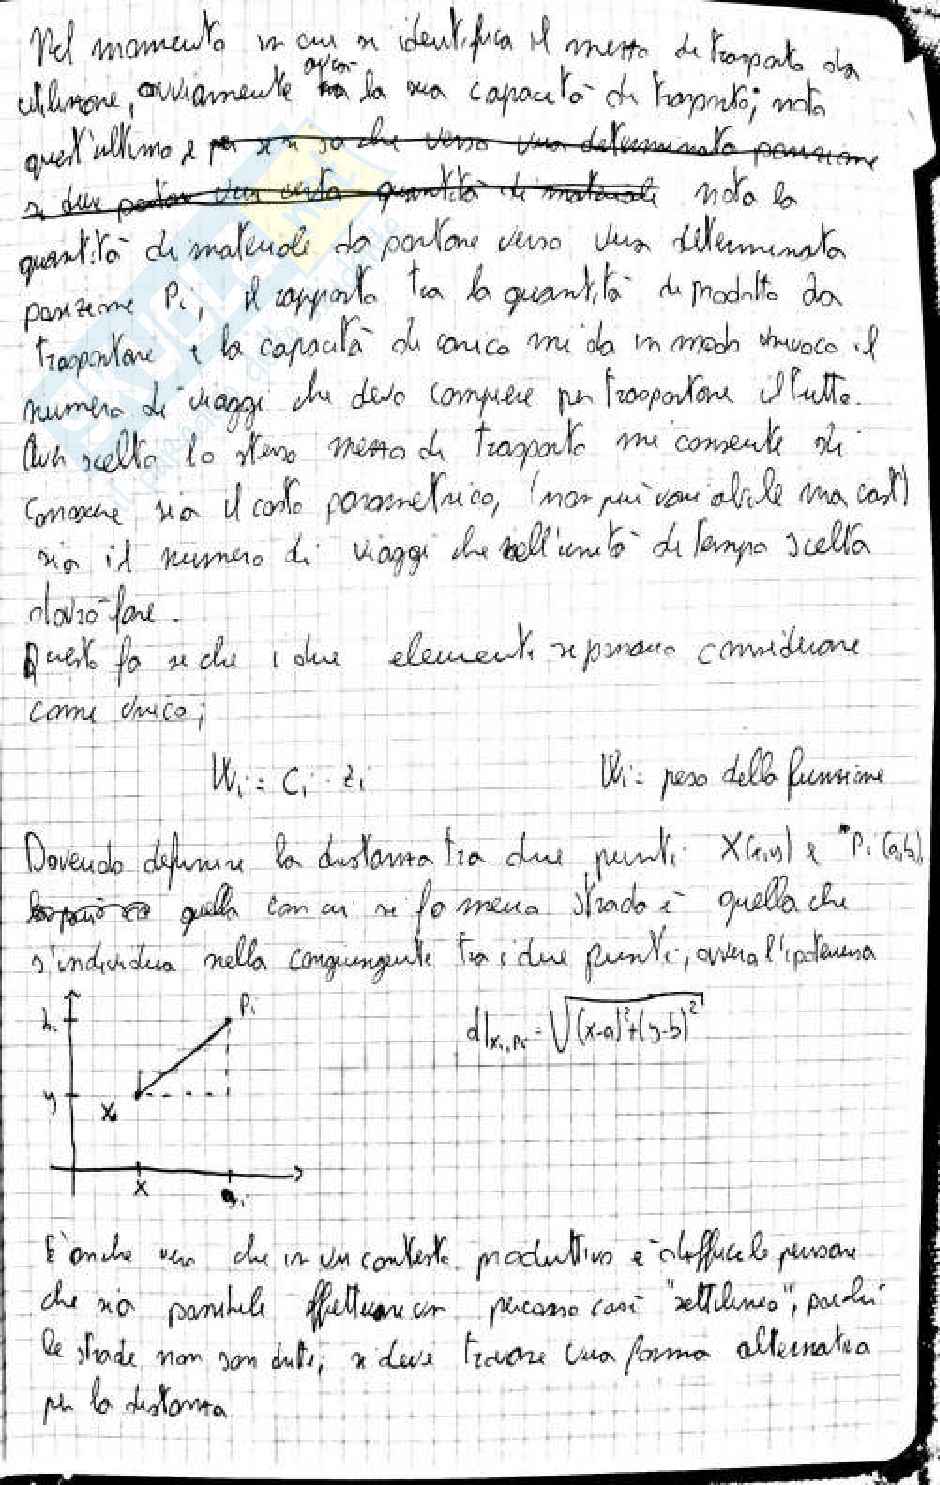 Nel momento in cui si identifica il mezzo di trasporto da
utilizzare, ovviamente anche la sua capacità di trasporto; nota
quest'ultima e per se si sa che verso una determinata posizione
si deve portare una certa quantità di materiale nota la
quantità di materiale da portare verso una determinata
posizione Pi, il rapporto tra la quantità di prodotto da
trasportare e la capacità di carico mi da in modo univoco il
numero di viaggi che devo compiere per trasportare il tutto.
Aver scelto lo stesso mezzo di trasporto mi consente di
conoscere sia il costo parametrico, (non più variabile ma cost)
sia il numero di viaggi che nell'unità di tempo scelta
dovrò fare.
Questo fa si che i due elementi si possano considerare
come unico;
Wi = Ci · zi
Wi = peso della funzione
Dovendo definire la distanza tra due punti X(x,y) e Pi(a,b),
quella con cui si fa meno strada è quella che
s'individua nella congiungente tra i due punti, ovvero l'ipotenusa
Pi
b
d|x,Pi = √(x-a)²+(y-b)²
y
X
x
ai
È anche vero che in un contesto produttivo è difficile pensare
che sia possibile effettuare un percorso così "rettilineo", poiché
le strade non son dritte, si deve trovare una forma alternativa
per la distanza
SKUOLA.net
il paradiso dello studente